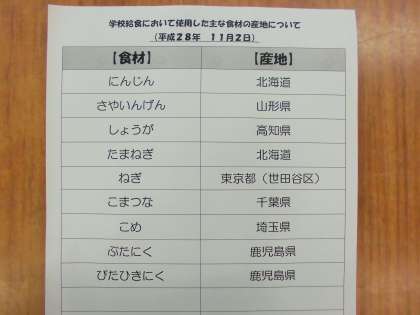 学校給食において使用した主な食材の産地について
（平成２８年　１１月２日）
【食材】 【産地】
にんじん 北海道
さやいんげん 山形県
しょうが 高知県
たまねぎ 北海道
ねぎ 東京都（世田谷区）
こまつな 千葉県
こめ 埼玉県
ぶたにく 鹿児島県
ぴたひきにく 鹿児島県